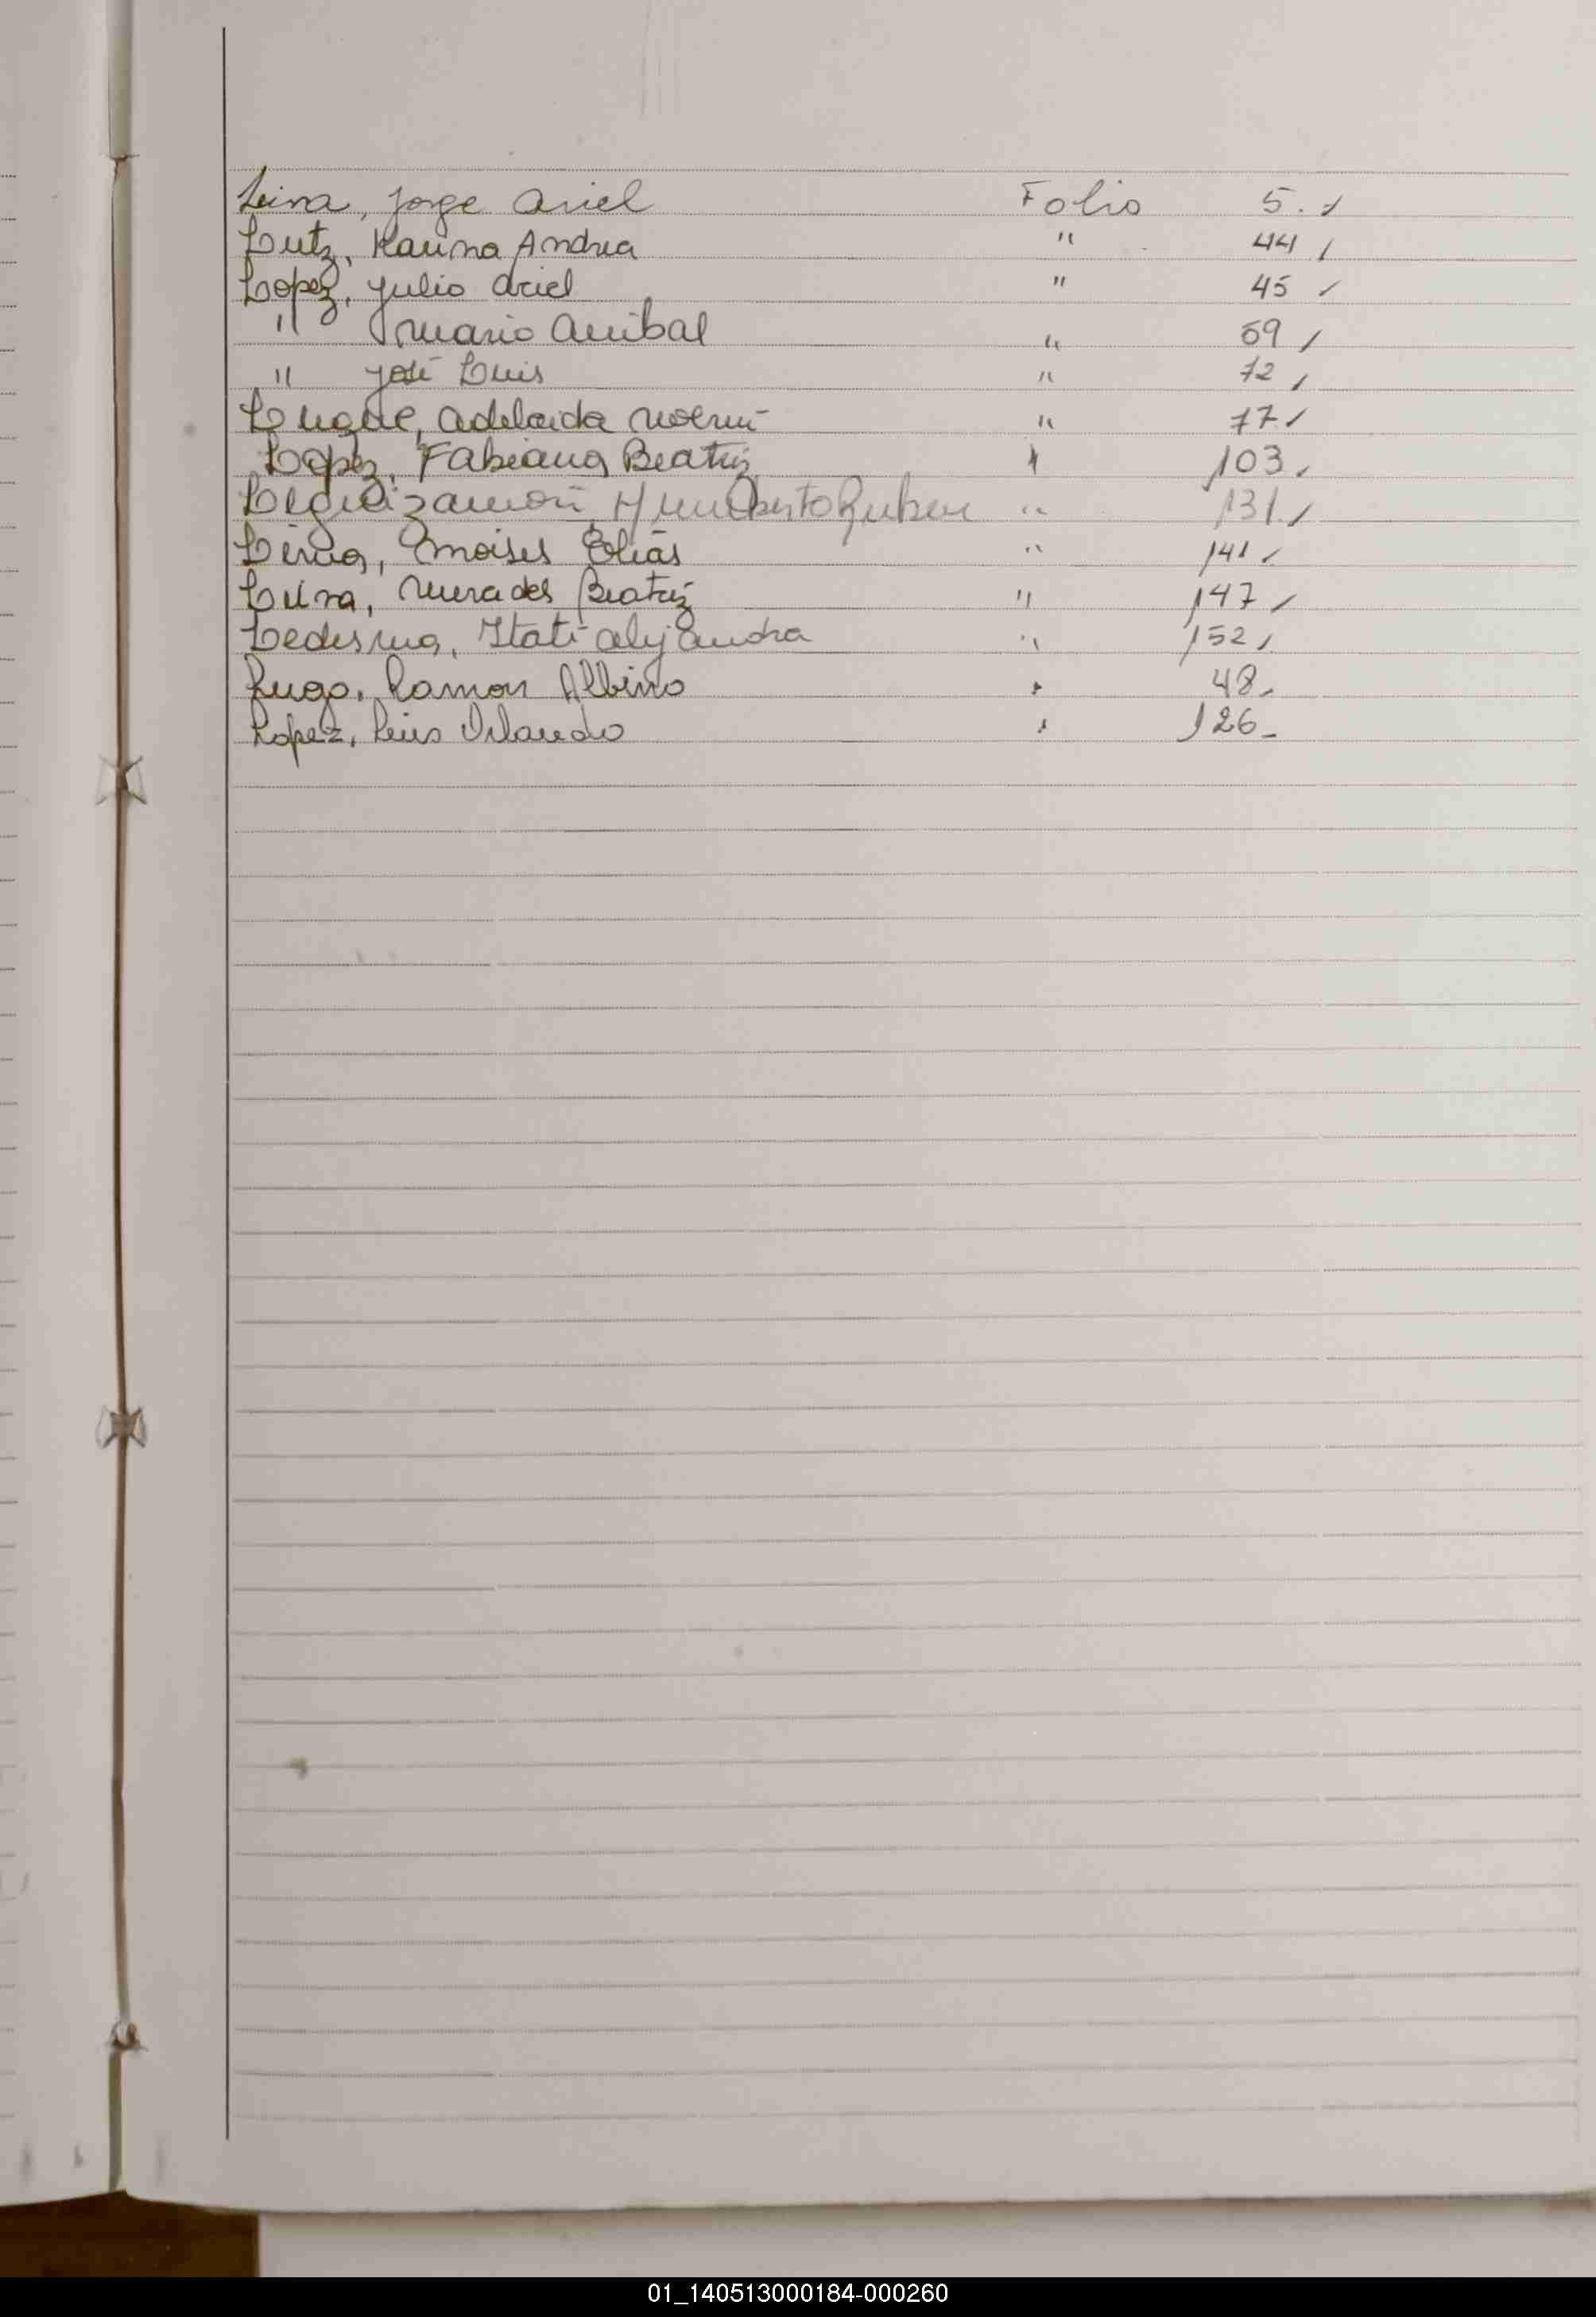 Leiva, Jorge Ariel Folio 5. /
Lutz, Karina Andrea " 44 /
Lopez, Julio Ariel " 45 /
" Mario Anibal " 59 /
" José Luis " 72 /
Luque, Adelaida Noemí " 77 /
Lopez, Fabiana Beatriz " 103.
Leguizamón, Humberto Ruben " 131. /
Moises Elias " 141 /
Beatriz " 147 /
Ledesma, Itatí Alejandra " 152 /
Lugo, Ramon Albino " 48.
Lopez, Luis Orlando " 126_
01_140513000184-000260